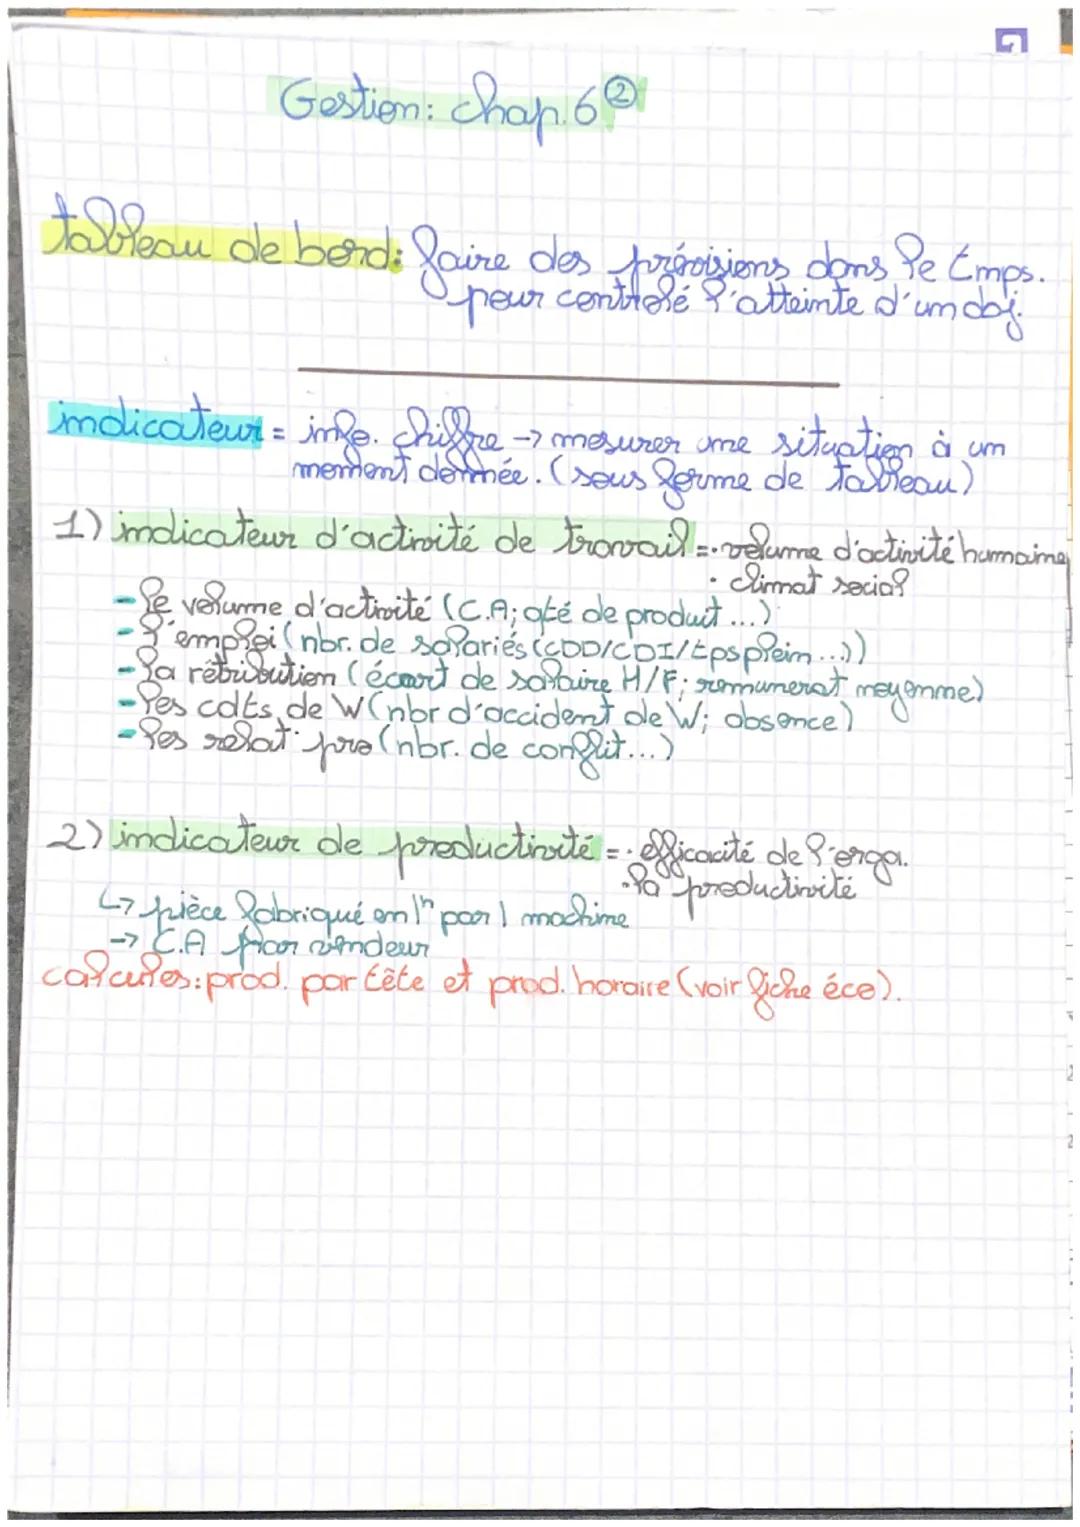 Gestion: chap.6 ②
tableau de bord: faire des prévisions dans le tmps.
pour controlé l'atteinte d'un obj.
indicateur = info. chiffre → mesurer une situation à un
moment donnée. (sous forme de tableau)
1) indicateur d'activité de travail = · volume d'activité humaine
· climat social
- le volume d'activité (C.A; qté de produit ...)
- l'emploi (nbr. de salariés (CDD/CDI/tps plein ...))
- la rétribution (écart de salaire H/F; remunerat° moyenne)
- les cdts de W (nbr d'accident de W; absence)
- les relat° pro (nbr. de conflit ...)
2) indicateur de productivité = · efficacité de l'orga.
· la productivité
↳ pièce fabriqué en 1h par 1 machine
→ C.A par vendeur
calcules: prod. par tête et prod. horaire (voir fiche éco).